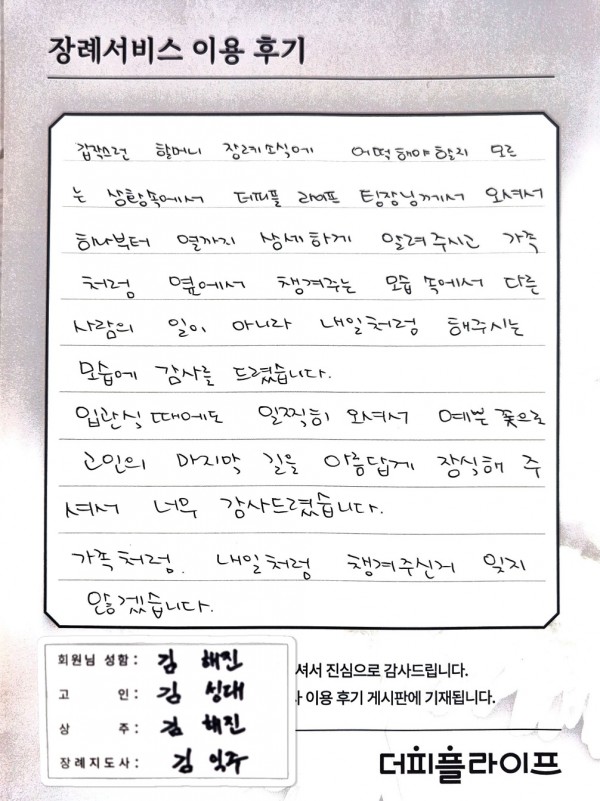 장례서비스 이용 후기
갑작스런 할머니 장례소식에 어떡해야할지 모르
는 상황속에서 더피플 라이프 팀장님께서 오셔서
하나부터 열까지 상세하게 알려주시고 가족
처럼 옆에서 챙겨주는 모습 속에서 다른
사람의 일이 아니라 내일처럼 해주시는
모습에 감사를 드렸습니다.
입관식 때에도 일찍히 오셔서 예쁜 꽃으로
고인의 마지막 길을 아름답게 장식해 주
셔서 너무 감사드렸습니다.
가족처럼. 내일처럼 챙겨주신거 잊지
않겠습니다.
회원님 성함: 김 해진
고 인: 김 성대
상 주: 김 해진
장례지도사: 김 익주
셔서 진심으로 감사드립니다.
이용 후기 게시판에 기재됩니다.
더피플라이프